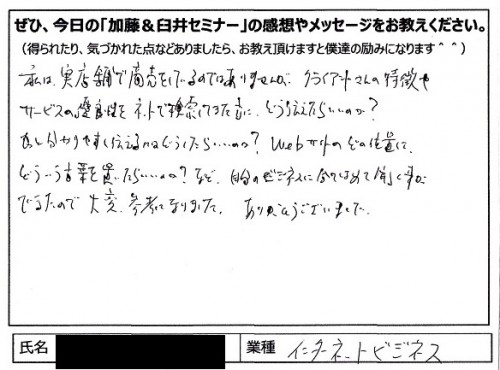 ぜひ、今日の「加藤&臼井セミナー」の感想やメッセージをお教えください。
(得られたり、気づかれた点などありましたら、お教え頂けますと僕達の励みになります^^)
私は、実店舗で商売をしているのではありませんが、クライアントさんの特徴や
サービスの優良性をネットで検索してきた方に、どう伝えたらいいのか?
もっと分かりやすく伝えるにはどうしたらいいのか? Webサイトのどの位置に、
どういう言葉を置いたらいいのか? など、自分のビジネスに合てはめて聞く事が
できたので 大変、参考になりました。 ありがとうございました。
氏名
業種 インターネットビジネス